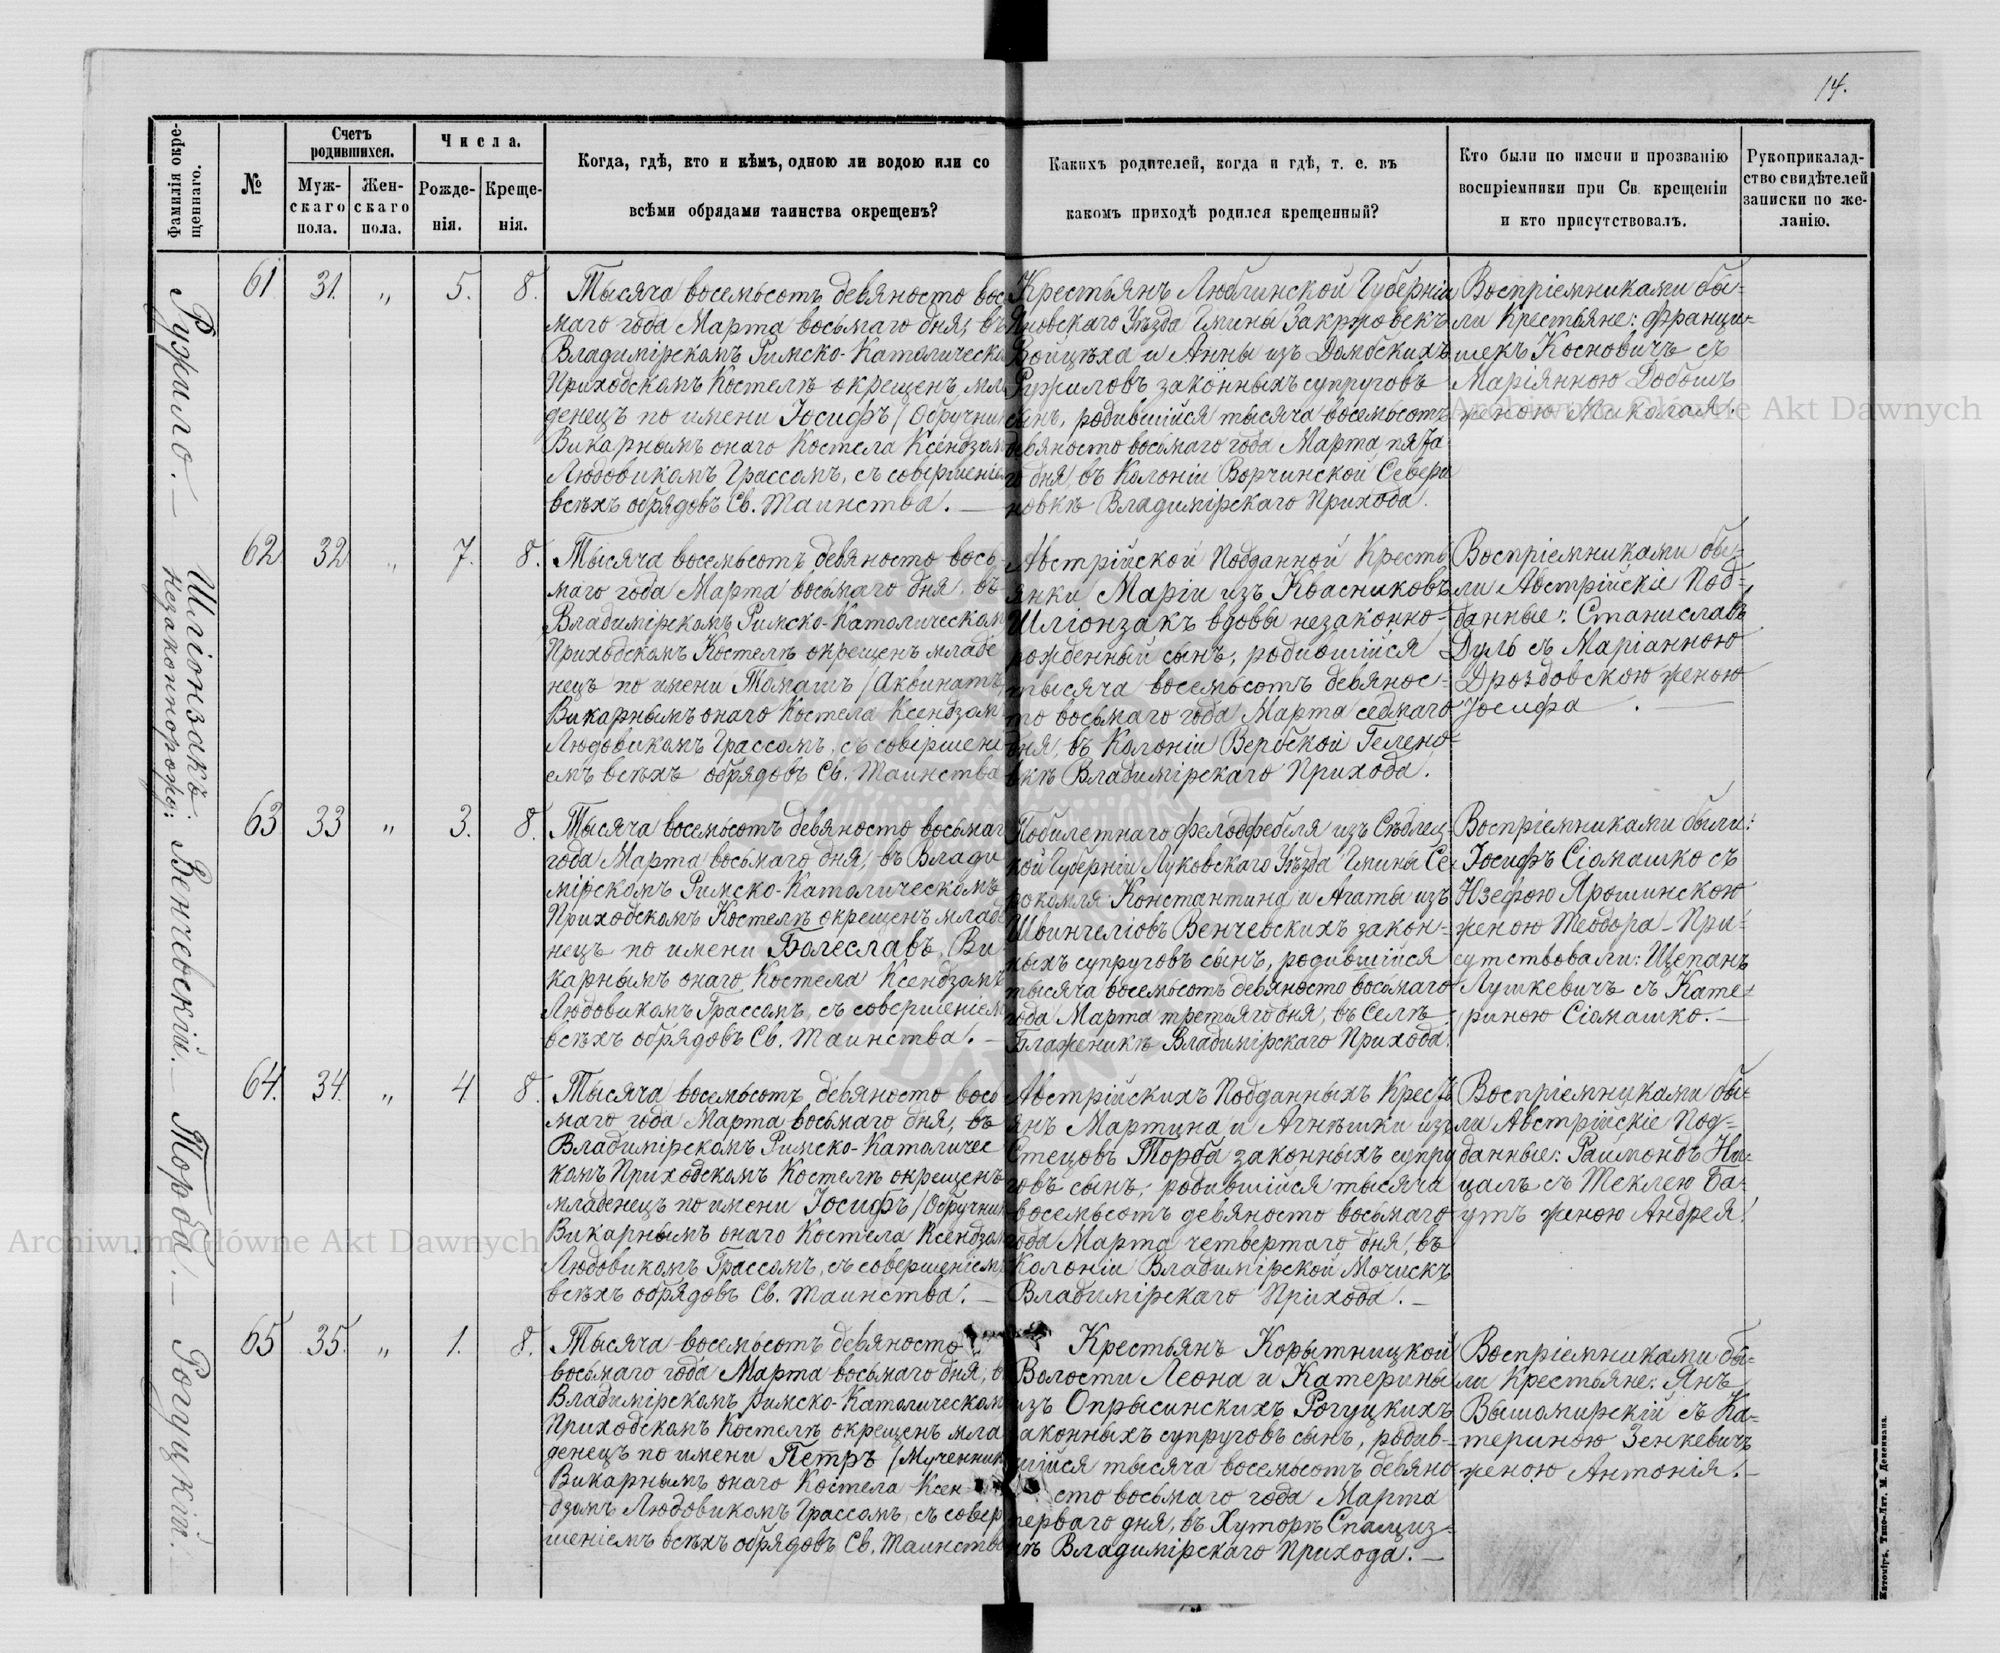 14.
Фамилія окре-
щеннаго.
№
Счетъ
родившихся.
Муж-
скаго
пола.
Жен-
скаго
пола.
Числа.
Рожде-
нія.
Креще-
нія.
Когда, гдѣ, кто и кѣмъ, одною ли водою или со
всѣми обрядами таинства окрещенъ?
Какихъ родителей, когда и гдѣ, т. е. въ
какомъ приходѣ родился крещенный?
Кто были по имени и прозванію
воспріемники при Св. крещеніи
и кто присутствовалъ.
Рукоприкалад-
ство свидѣтелей
записки по же-
ланію.
Ружило. —
61 31. „ 5. 8.
Тысяча восемьсотъ девяносто вос
маго года Марта восьмаго дня, въ
Владимірскомъ Римско-Католическо
Приходскомъ Костелѣ окрещенъ мла
денецъ по имени Іосифъ /Обручни
Викарнымъ онаго Костела Ксендзом
Людовикомъ Грассомъ, съ совершеніе
всѣхъ обрядовъ Св. Таинства. —
Крестьянъ Люблинской Губерніи
Яновскаго Уѣзда Гмины Закржовекъ
Войцѣха и Анны изъ Домбскихъ
Ружиловъ законныхъ супруговъ
сынъ, родившійся тысяча восемьсотъ
девяносто восьмаго года Марта пята
го дня, въ Колоніи Ворчинской Севери
новкѣ Владимірскаго Прихода.
Воспріемниками бы-
ли Крестьяне: Франци-
шекъ Косновичъ съ
Маріянною Добошъ
женою Миколая.
Шліонзакъ
незаконнорожд:
62. 32 „ 7. 8.
Тысяча восемьсотъ девяносто вось
маго года Марта восьмаго дня, въ
Владимірскомъ Римско-Католическом
Приходскомъ Костелѣ окрещенъ младе
нецъ по имени Томашъ /Аквинатъ
Викарнымъ онаго Костела Ксендзом
Людовикомъ Грассомъ, съ совершені
емъ всѣхъ обрядовъ Св. Таинства
Австрійской Подданной Кресть
янки Маріи изъ Квасниковъ
Шліонзакъ вдовы незаконно-
рожденный сынъ, родившійся
тысяча восемьсотъ девянос-
то восьмаго года Марта седмаго
дня, въ Колоніи Вербской Гелено-
вкѣ Владимірскаго Прихода.
Воспріемниками бы-
ли Австрійскіе Под-
данные: Станиславъ
Дуль съ Маріанною
Дроздовскою женою
Іосифа. —
Венчевскій. —
63 33 „ 3. 8.
Тысяча восемьсотъ девяносто восьмаг
года Марта восьмаго дня, въ Влади
мірскомъ Римско-Католическомъ
Приходскомъ Костелѣ окрещенъ младе
нецъ по имени Болеславъ, Ви
карнымъ онаго Костела Ксендзомъ
Людовикомъ Грассомъ, съ совершеніем
всѣхъ обрядовъ Св. Таинства. —
изъ Сѣдлец-
кой Губерніи Луковскаго Уѣзда Гмины Се-
рокомля Константина и Агаты изъ
Швингеліовъ Венчевскихъ закон-
ныхъ супруговъ сынъ, родившійся
тысяча восемьсотъ девяносто восьмаго
года Марта третьяго дня, въ Селѣ
Блаженикѣ Владимірскаго Прихода.
Воспріемниками были:
Іосифъ Сіомашко съ
Юзефою Ярошинскою
женою Теодора - При-
сутствовали: Щепанъ
Лушкевичъ съ Кате-
риною Сіомашко. —
Торба. —
64. 34. „ 4 8.
Тысяча восемьсотъ девяносто вось
маго года Марта восьмаго дня, въ
Владимірскомъ Римско-Католичес
комъ Приходскомъ Костелѣ окрещенъ
младенецъ по имени Іосифъ /Обручник
Викарнымъ онаго Костела Ксендзом
Людовикомъ Грассомъ, съ совершеніемъ
всѣхъ обрядовъ Св. Таинства. —
Австрійскихъ Подданныхъ Кресть
янъ Мартина и Агнѣшки изъ
Стецовъ Торба законныхъ супру
говъ сынъ, родившійся тысяча
восемьсотъ девяносто восьмаго
года Марта четвертаго дня, въ
Колоніи Владимірской Мочискъ
Владимірскаго Прихода. —
Воспріемниками бы-
ли Австрійскіе Под-
данные: Раймондъ Ни-
цалъ съ Теклею Ба-
утъ женою Андрея.
Рогуцкій.
65 35. „ 1. 8.
Тысяча восемьсотъ девяносто
восьмаго года Марта восьмаго дня, в
Владимірскомъ Римско-Католическом
Приходскомъ Костелѣ окрещенъ мла
денецъ по имени Петръ /Мученник
Викарнымъ онаго Костела Ксен-
дзомъ Людовикомъ Грассомъ, съ совер
шеніемъ всѣхъ обрядовъ Св. Таинства
Крестьянъ Корытницкой
Волости Леона и Катерины
изъ Опрысинскихъ Рогуцкихъ
законныхъ супруговъ сынъ, родив-
шійся тысяча восемьсотъ девяно
сто восьмаго года Марта
перваго дня, въ Хуторѣ
Владимірскаго Прихода. —
Воспріемниками бы-
ли Крестьяне: Янъ
Вышомирскій съ Ка-
териною Зенкевичъ
женою Антонія. —
Житоміръ, Типо-Лит. М. Дененмана.
Archiwum Główne Akt Dawnych
Archiwum Główne Akt Dawnych